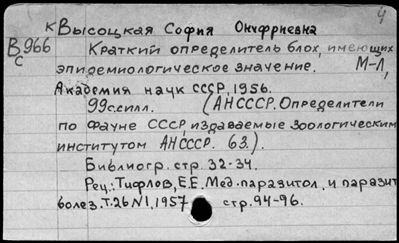 4
К Высоцкая София Онуфриевна
В966
с
Краткий определитель блох, имеющих
эпидемиологическое значение. М-Л,
Академия наук СССР, 1956.
99с.илл. (АНСССР. Определители
по фауне СССР, издаваемые Зоологическим
институтом АНСССР. 63.)
Библиогр. стр. 32-34.
Рец.: Тифлов, Е.Е. Мед. паразитол. и паразит
болез. Т.26 N1, 1957 стр. 94-96.